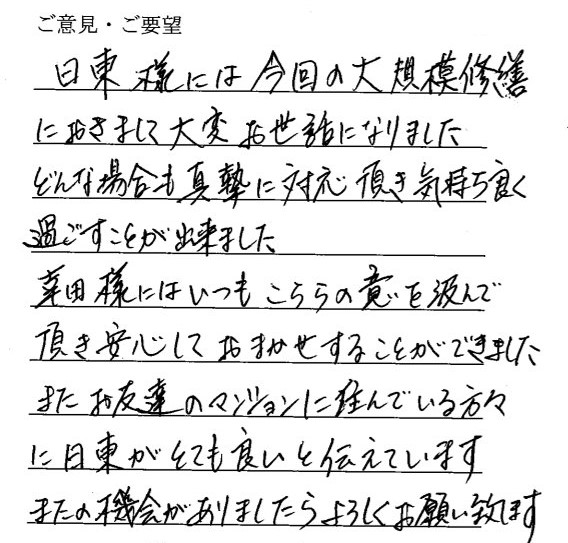 ご意見・ご要望
日東様には今回の大規模修繕
におきまして大変お世話になりました
どんな場合も真摯に対応頂き気持ち良く
過ごすことが出来ました
幸田様にはいつもこちらの意を汲んで
頂き安心しておまかせすることができました
またお友達のマンションに住んでいる方々
に日東がとても良いと伝えています
またの機会がありましたらよろしくお願い致します